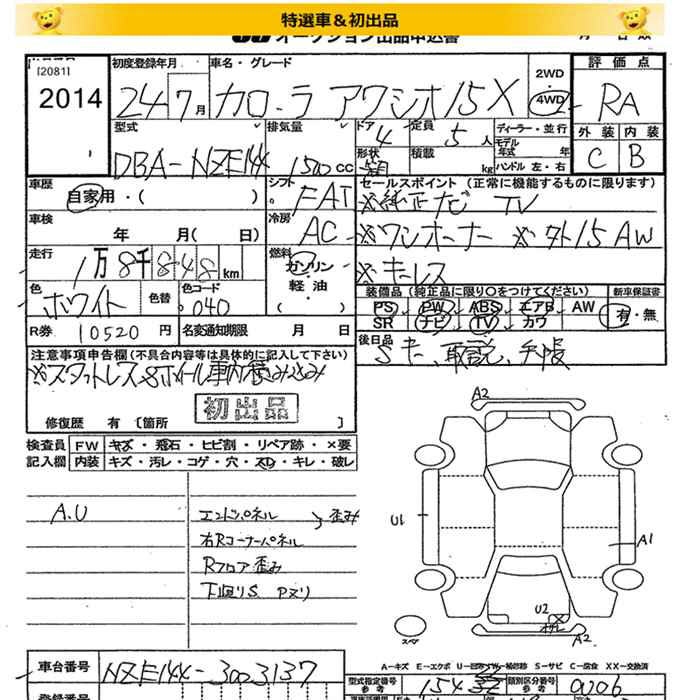 特選車&初出品
オークション出品申込書
[2081]
2014
初度登録年月
24 7月
車名・グレード
カローラ アクシオ 15X
2WD
4WD
評価点
RA
外装 内装
C B
型式
DBA-NZE144
排気量
1500cc
ドア
4
形状
定員
5人
積載
kg
ディーラー・並行
モデル年式 年
ハンドル 左・右
車歴
自家用・( )
シフト
FAT
セールスポイント (正常に機能するものに限ります)
※純正ナビ TV
※ワンオーナー ※外15AW
※キーレス
車検
年 月( 日)
冷房
AC
走行
1万8千848km
燃料
ガソリン
軽・油
( )
色
ホワイト
色替
色コード
040
装備品 (純正品に限り○をつけてください)
PS PW ABS エアB AW
SR ナビ TV カワ
新車保証書
有・無
R券 10520円
名変通知期限 月 日
後日品
Sキー、取説、手帳
注意事項申告欄(不具合内容等は具体的に記入して下さい)
※スタットレス&ホイール車内積み込み
初出品
修復歴 有 [箇所 ]
検査員
記入欄
FW キズ・飛石・ヒビ割・リペア跡・×要
内装 キズ・汚レ・コゲ・穴・スレ・キレ・破レ
A.U
エンドパネル 歪み
右Rコーナーパネル
Rフロア歪み
下廻りS Pヌリ
A2
U1
A1
U2
A2
スペア
A-キズ E-エクボ U-凹み W-補修跡 S-サビ C-腐食 XX-交換済
車台番号
NZE144-3003137
型式指定番号
参考
類別区分番号
参考
0206
登録番号